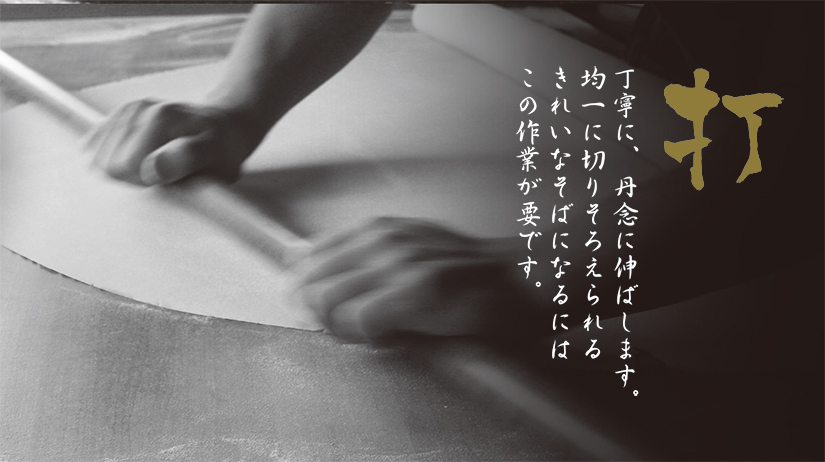 打
丁寧に、丹念に伸ばします。
均一に切りそろえられる
きれいなそばになるには
この作業が要です。